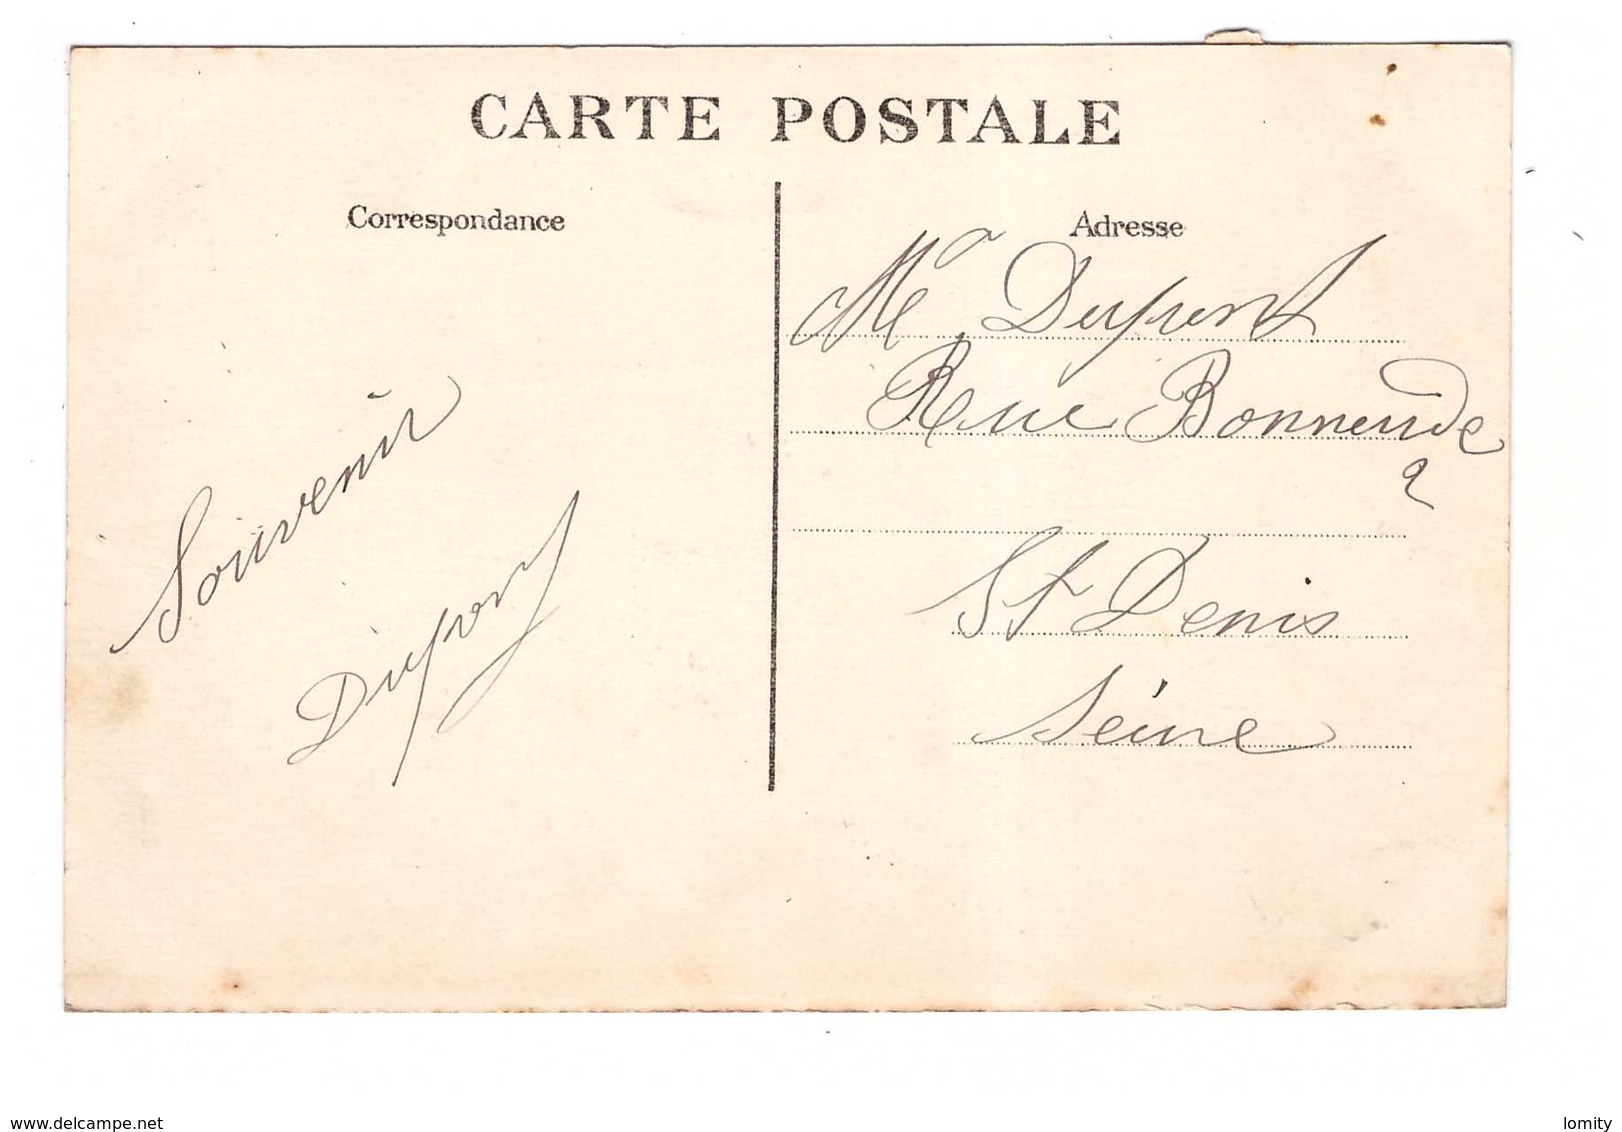 CARTE POSTALE
Correspondance
Adresse
Souvenir
Dupont
Mr Dupont
Rue Bonnende
2
St Denis
Seine
www.delcampe.net
lomity